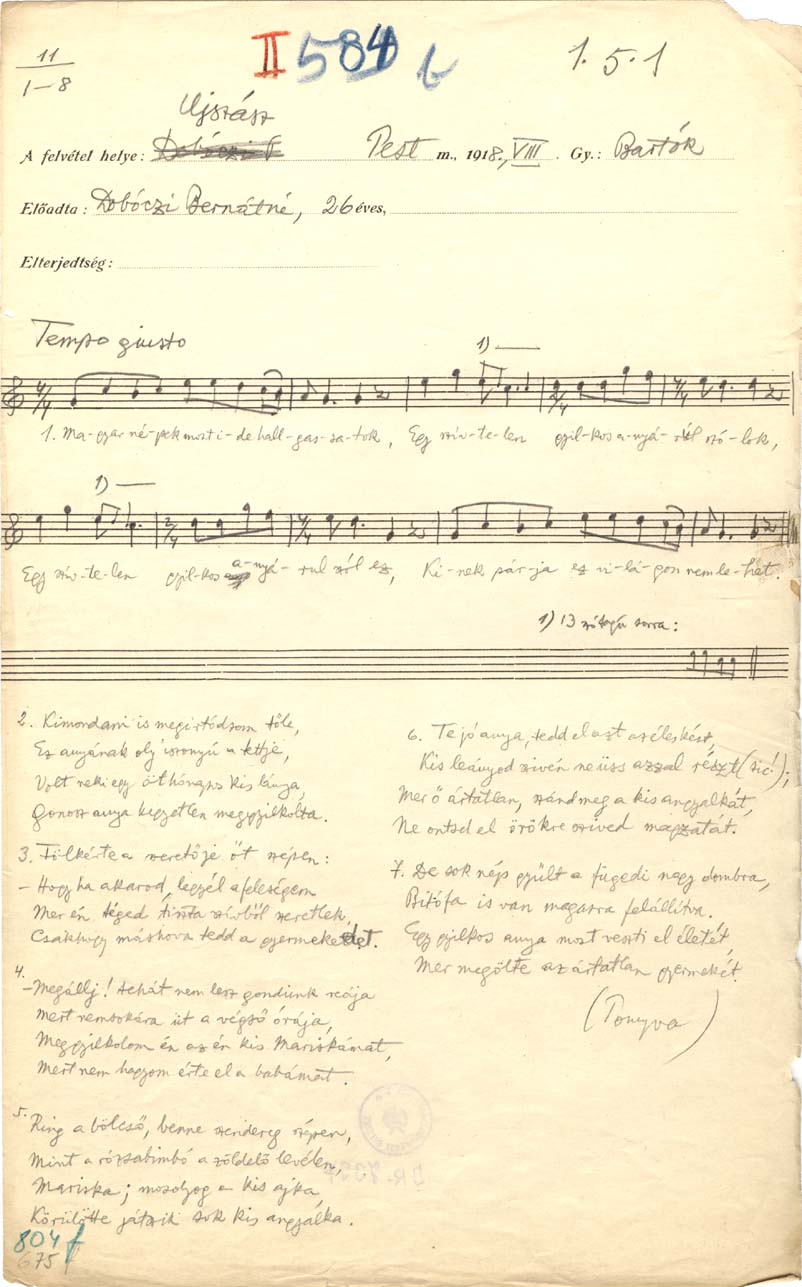 11
1–8
II 584 b
1. 5. 1
Ujszász
A felvétel helye: Dobóczi Pest m., 1918., VIII. Gy.: Bartók
Előadta: Dobóczi Bernátné, 26 éves,
Elterjedtség:
Tempo giusto
1)
1. Ma-gyar né-pek most i-de hall-gas-sa-tok, Egy szív-te-len gyil-kos a-nyá-rúl szó-lok,
1)
Egy szív-te-len gyil-kos a-nyá-rul szól ez, Ki-nek pár-ja ez vi-lá-gon nem le-het.
1) 13 szótagú sorra:
2. Kimondani is megirtódzom tőle,
Ez anyának oly iszonyú a tettje,
Volt neki egy öthónapos kis lánya,
Gonosz anya kegyetlen meggyilkolta.
3. Fölkérte a szeretője őt szépen:
– Hogy ha akarod, legyél a feleségem
Mer én téged tiszta szívből szeretlek,
Csakhogy máshova tedd a gyermekedet.
4.
– Megállj! tehát nem lesz gondunk reája
Mert nemsokára üt a végső órája,
Meggyilkolom én az én kis Mariskámat,
Mert nem hagyom érte el a babámat.
5.
Ring a bölcső, benne szendereg szépen,
Mint a rózsabimbó a zöldelő levélen,
Mariska; mosolyog a kis ajka,
Körülötte játszik sok kis angyalka.
6. Te jó anya, tedd el azt az éles kést,
Kis leányod szivén ne üss azzal részt (sic!);
Mer ő ártatlan, szánd meg a kis angyalkát,
Ne ontsd el örökre szived magzatát.
7. De sok nép gyűlt a fügedi nagy dombra,
Bitófa is van magasra felállítva.
Egy gyilkos anya most veszti el életét,
Mer megölte az ártatlan gyermekét.
(Ponyva)
804 f
675